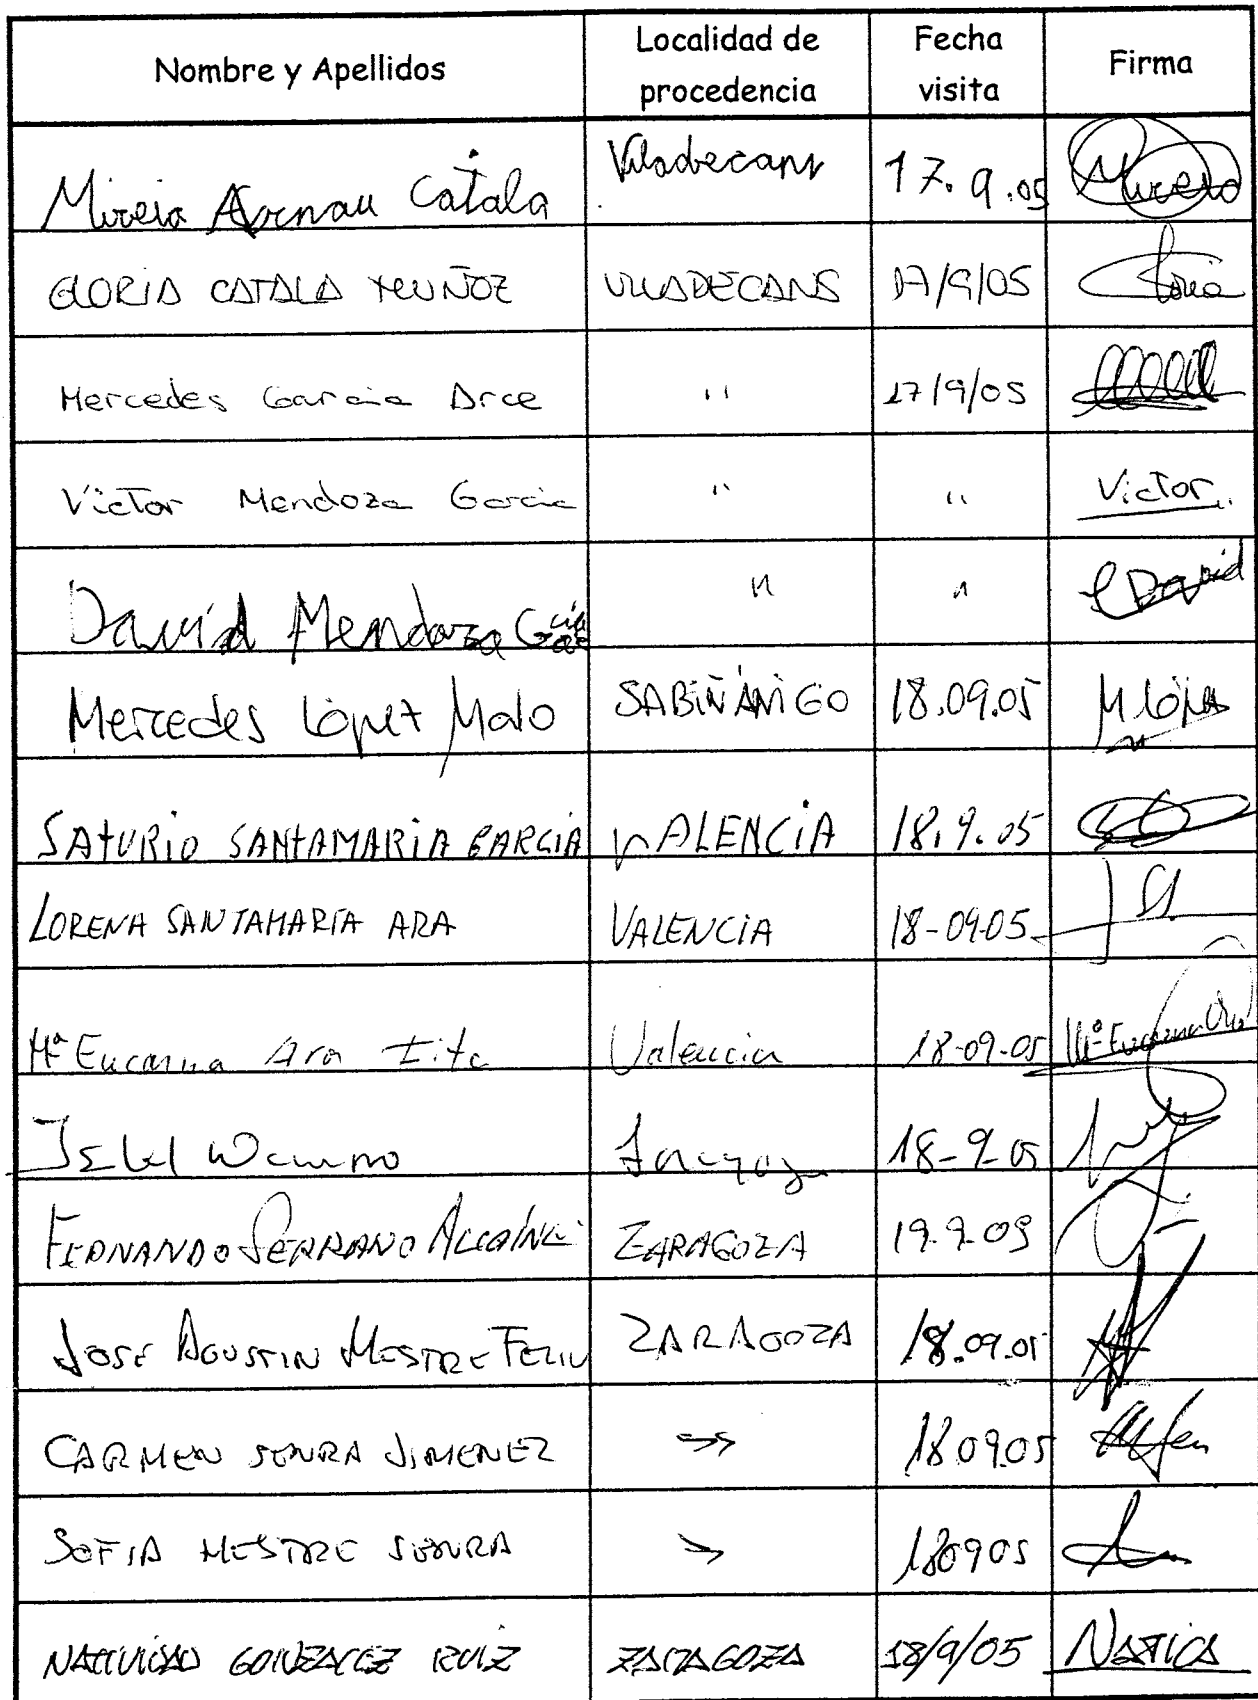 Nombre y Apellidos Localidad de procedencia Fecha visita Firma
Mireia Arnau Catala Viladecans 17.9.05 Mireia
GLORIA CATALA MUÑOZ VILADECANS 17/9/05 Gloria
Mercedes Garcia Arce " 17/9/05
Victor Mendoza Garcia " " Victor
David Mendoza García " " David
Mercedes López Malo SABIÑÁNIGO 18.09.05 M López
SATURIO SANTAMARIA GARCIA VALENCIA 18.9.05
LORENA SANTAMARÍA ARA VALENCIA 18-09-05
Mª Encarna Ara Valencia 18-09-05 Mª Encarna Ara
Zaragoza 18-9-05
FERNANDO SERRANO ZARAGOZA 19.9.05
JOSE AGUSTIN MESTRE FELIU ZARAGOZA 18.09.05
CARMEN JIMENEZ 18.09.05
SOFIA MESTRE 180905
NATIVIDAD GONZALEZ RUIZ ZARAGOZA 18/9/05 NATICA